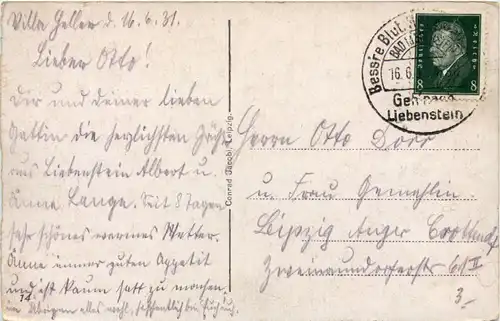 Villa Heller d. 16.6.31.
Lieber Otto!
Dir und deiner lieben
Gattin die herzlichsten Grüße
aus Liebenstein Albert u.
Anna Lange. Seit 8 Tagen
sehr schönes warmes Wetter.
Anne immer guten Appetit
und ist kaum satt zu machen.
im Übrigen alles wohl, hoffentlich bei Euch auch.
Conrad Jacobi, Leipzig.
Bess're Blut
BAD
16.6.
Geh nach
Liebenstein
8 8
Herrn Otto Dorr
u. Frau Gemahlin
Leipzig Anger Crottendf
Zweinaundorferstr.
3.-